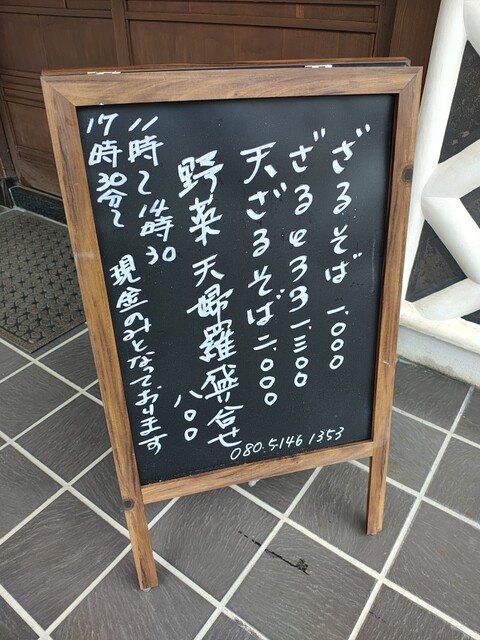 ざるそば 一、〇〇〇
ざるとろろ 一、三〇〇
天ざるそば 二、〇〇〇
野菜天婦羅盛り合せ
八〇〇
11時〜14時30
17時30分〜
現金のみとなっております
080.5146 1353